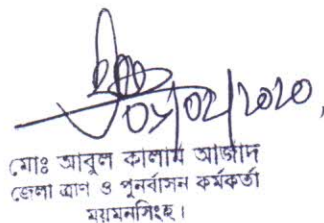 ০৯/০২/২০২০
মোঃ আবুল কালাম আজাদ
জেলা ত্রাণ ও পুনর্বাসন কর্মকর্তা
ময়মনসিংহ।